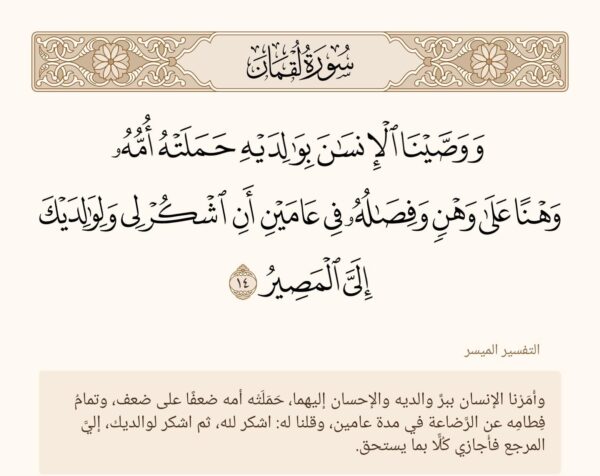 سُورَةُ لُقْمَان
وَوَصَّيْنَا ٱلْإِنسَٰنَ بِوَٰلِدَيْهِ حَمَلَتْهُ أُمُّهُۥ
وَهْنًا عَلَىٰ وَهْنٍ وَفِصَٰلُهُۥ فِى عَامَيْنِ أَنِ ٱشْكُرْ لِى وَلِوَٰلِدَيْكَ
إِلَىَّ ٱلْمَصِيرُ ١٤
التفسير الميسر
وأمَرْنا الإنسان ببرِّ والديه والإحسان إليهما، حَمَلَتْه أمه ضعفًا على ضعف، وتمامُ
فِطامِه عن الرَّضاعة في مدة عامين، وقلنا له: اشكر لله، ثم اشكر لوالديك، إليَّ
المرجع فأُجازي كُلًّا بما يستحق.